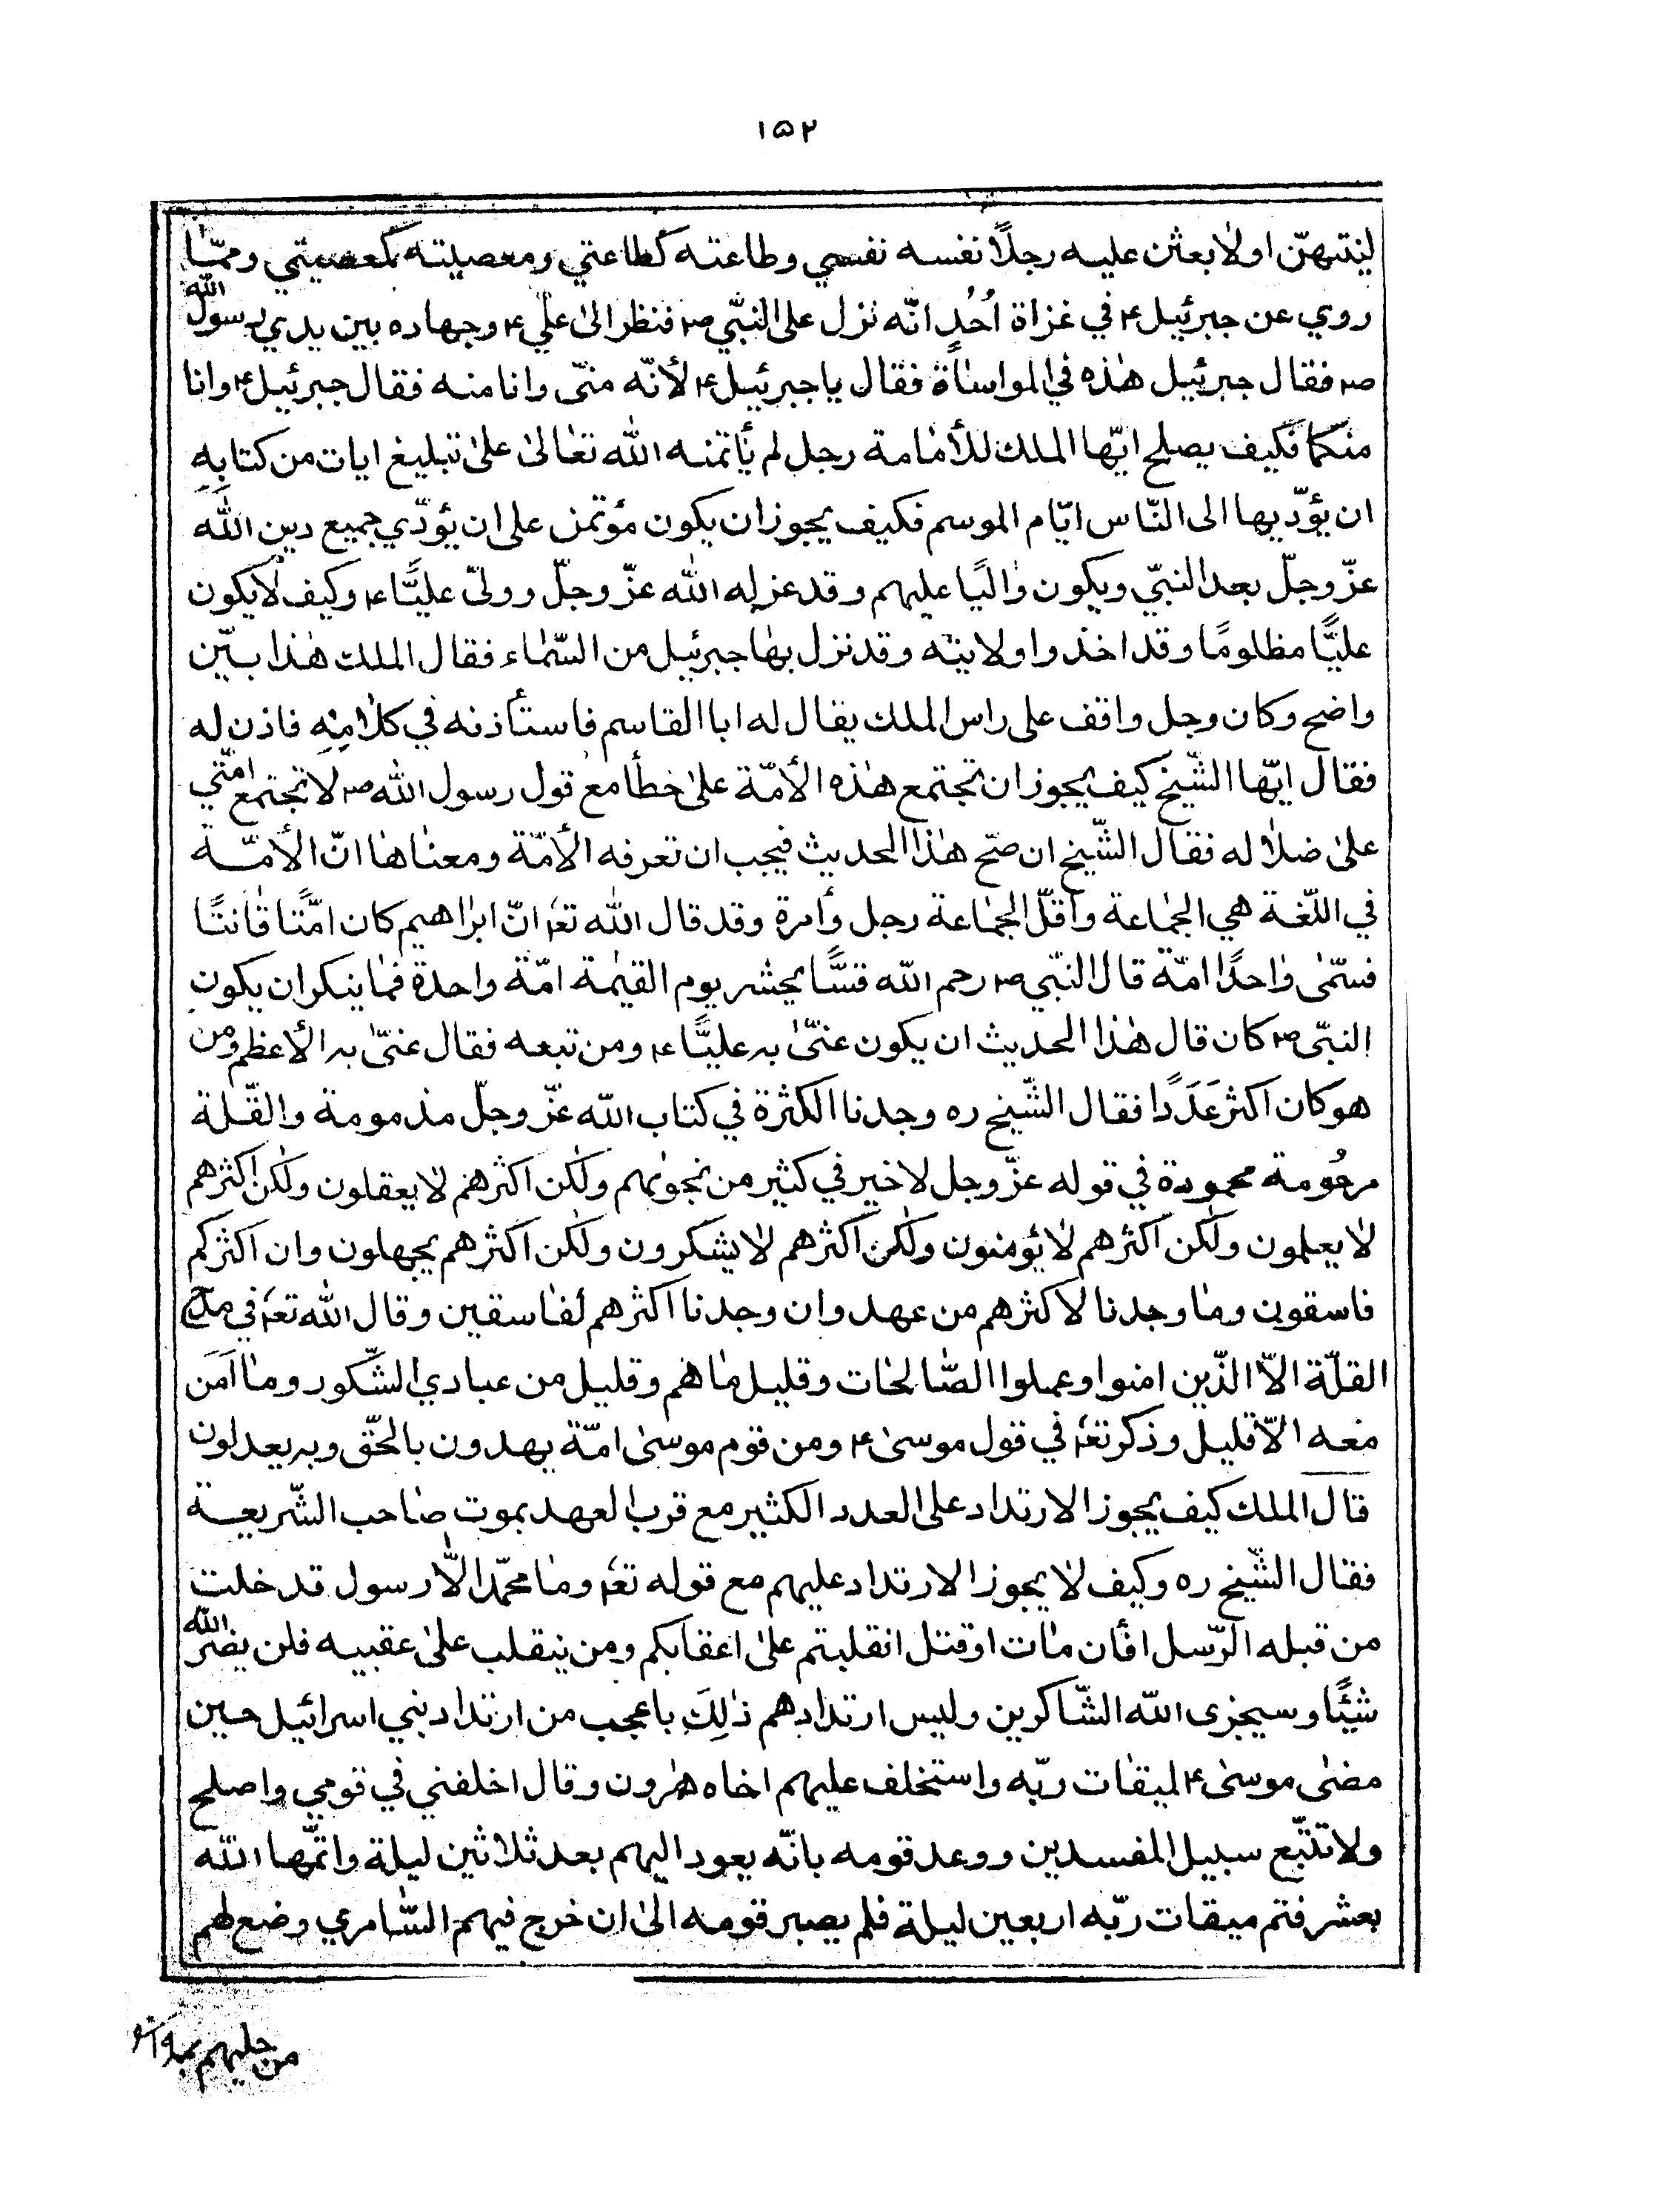 ۱۵۲
لينتهنّ اولابعثن عليه رجلاً نفسه نفسي وطاعته كطاعتي ومعصيته كمعصيتي وممّا
روي عن جبرئيل ع في غزاة اُحُدٍ انّه نزل على النبّي ص فنظر الى علي ع وجهاده بين يدي رسول الله
ص فقال جبرئيل هذه في المواساة فقال ياجبرئيل ع لأنّه منّي وانا منه فقال جبرئيل ع وانا
منكما فكيف يصلح ايّها الملك للأمامة رجل لم يأتمنه الله تعالى على تبليغ ايات من كتابهِ
ان يؤدّيها الى النّاس ايّام الموسم فكيف يجوز ان يكون مؤتمن على ان يؤدّي جميع دين الله
عزّ وجلّ بعد النبيّ ويكون واليًا عليهم وقد عزله الله عزّ وجلّ وولىّ عليًّا ع وكيف لا يكون
عليًّا مظلومًا وقد اخذوا ولايته وقد نزل بها جبرئيل من السّماء فقال الملك هذا بيّن
واضح وكان وجل واقف على راس الملك يقال له ابا القاسم فاستأذنه في كلامِهِ فاذن له
فقال ايّها الشّيخ كيف يجوز ان تجتمع هذه الأمّة على خطأ مع قول رسول الله ص لا تجتمع امّتي
على ضلاله فقال الشّيخ ان صحّ هذا الحديث فيجب ان تعرفه الأمّة ومعناها انّ الأمّة
في اللّغة هي الجماعة وأقلّ الجماعة رجل وأمرة وقد قال الله تع انّ ابراهيم كان امّتًا قانتًا
فسمّى واحدًا امّة قال النبّي ص رحم الله قسًّا يحشر يوم القيمة امّة واحدة فما ينكر ان يكون
النبّي ص كان قال هذا الحديث ان يكون عنّى به عليًّا ع ومن تبعه فقال عنّى به الأعظم ومن
هو كان اكثر عَدَدًا فقال الشّيخ ره وجدنا الكثرة في كتاب الله عزّ وجلّ مذمومة والقّلة
مرحُومة محمودة في قوله عزّ وجل لا خير في كثير من نجويهم ولكن اكثرهم لا يعقلون ولكن اكثرهم
لا يعلمون ولكن اكثرهم لا يؤمنون ولكن اكثرهم لا يشكرون ولكن اكثرهم يجهلون وان اكثركم
فاسقون وما وجدنا لاكثرهم من عهد وان وجدنا اكثرهم لفاسقين وقال الله تع في مدح
القلّة الاّ الذّين امنوا وعملوا الصّالحات وقليل ما هم وقليل من عبادي الشّكور وما اَمَن
معه الاّ قليل وذكر تع في قول موسى ع ومن قوم موسى امّة يهدون بالحقّ وبه يعدلون
قال الملك كيف يجوز الارتداد على العدد الكثير مع قرب العهد بموت صاحب الشّريعة
فقال الشّيخ ره وكيف لا يجوز الارتداد عليهم مع قوله تع وما محمّد الاّ رسول قد خلت
من قبله الرّسل افأن مات او قتل انقلبتم على اعقابكم ومن ينقلب على عقبيه فلن يضرّ الله
شيئًا وسيجزى الله الشّاكرين وليس ارتدادهم ذلِكَ باعجب من ارتداد بني اسرائيل حين
مضى موسى ع لميقات ربّه واستخلف عليهم اخاه هرون وقال اخلفني في قومي واصلح
ولا تتّبع سبيل المفسدين ووعد قومه بانّه يعود اليهم بعد ثلاثين ليلة واتمّها الله
بعشر فتم ميقات ربّه اربعين ليلة فلم يصبر قومه الى ان خرج فيهم السّامري وضع لهم
من حليهم